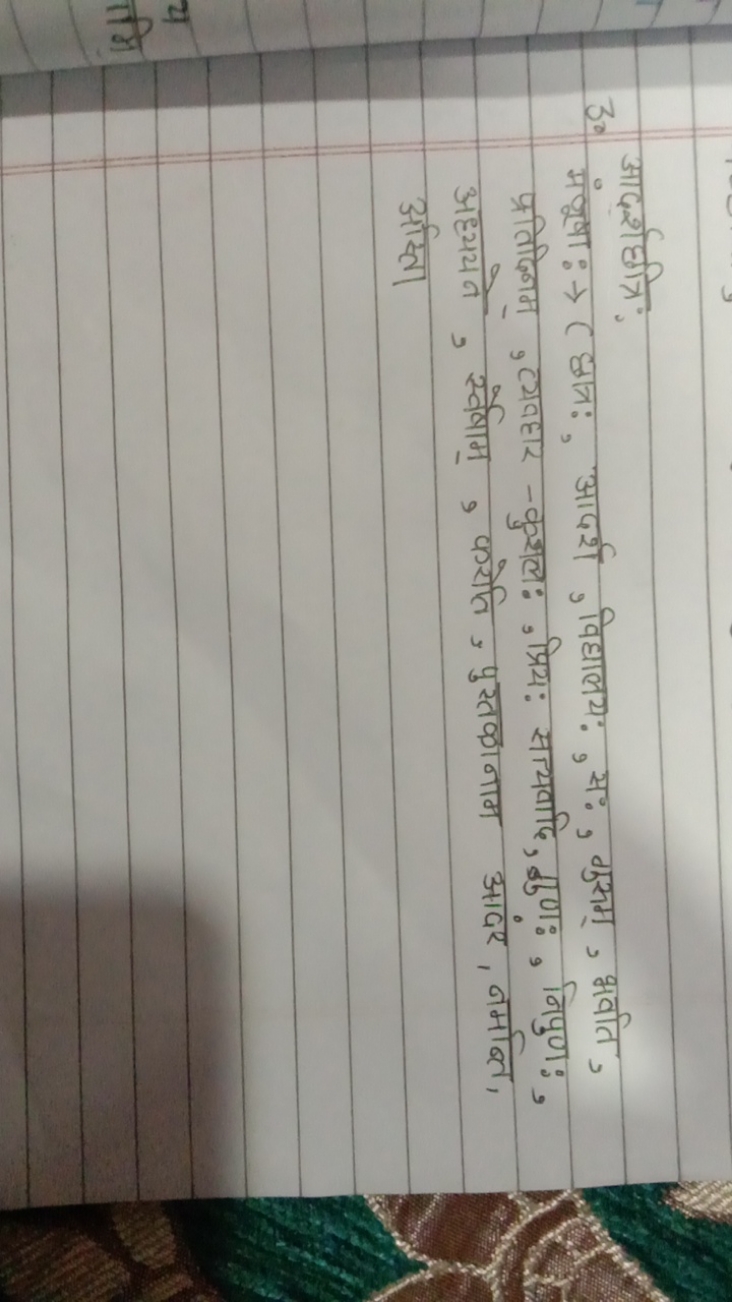 आदर्शछात्र:
3. मंजूषा :→ ( छात्र: , आदर्श , विद्यालय: , स: , गुरुम् , भवति ,
प्रतिदिनम् , व्यवहार - कुशल: , प्रिय: सत्यवादि , गुण: , निपुण: ,
अध्ययने , सर्वेषाम् , करोति , पुस्तकानाम आदर , नमति ,